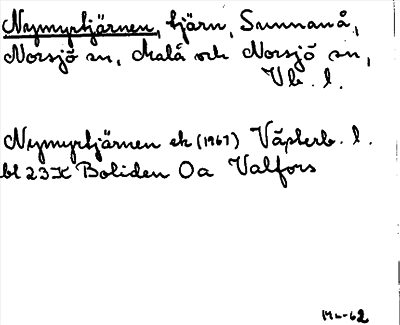 Nymyrtjärnen, tjärn, Sunnanå,
Norsjö sn, Malå och Norsjö sn,
Vb. l.
Nymyrtjärnen ek (1967) Västerb. l.
bl 23K Boliden 0a Valfors